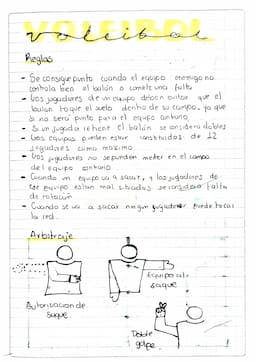 VOLEIBOL
voleibol
Reglas
- Se consigue punto cuando el equipo enemigo no
controla bien el balón o comete una falta
- Los jugadores de un equipo deben evitar que el
balon toque el suelo dentro de su campo, ya que
si no sera punto para el equipo contrario
- Si un jugador retient el balón se considera dobles
- Los equipos pueden estar constituidos de 12
jugadores como maximo
- Los jugadores no se pueden meter en el campo
del equipo contrario
- Cuando un equipo va a sacar, y los jugadores de
ese equipo estan mal situados se considera falta
de rotación
- Cuando se va a sacar ningun jugador puede tocar
la red.
Arbitraje
Autorizacion de
saque.
Equipo al
saque
Doble
golpe.